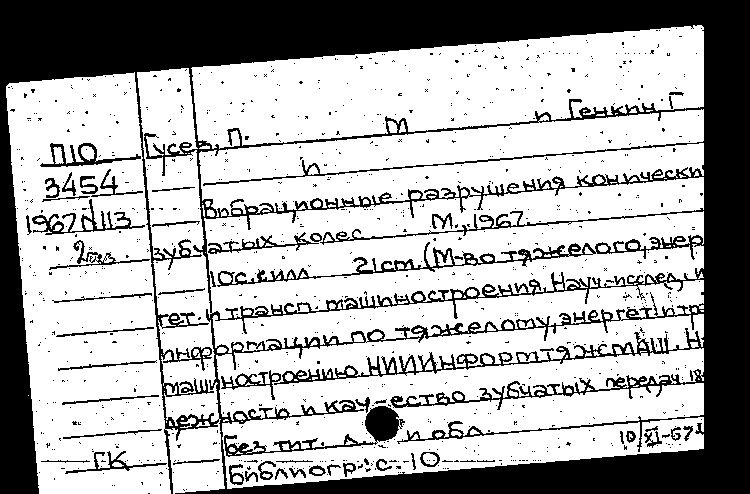 П10
3454
1967 N 113
ГК
Гусев, П. М и Генкин, Г
и
Вибрационные разрушения конически
зубчатых колес М., 1967.
10с. с илл. 21cm. (М-во тяжелого, энер
гет. и трансп. машиностроения. Науч.-исслед. и
информации по тяжелому, энергет. и тра
машиностроению. НИИИнформтяжмаш. На
дежность и качество зубчатых передач. 18-
без тит. л. и обл.
Библиогр.: с. 10
10/XI-67